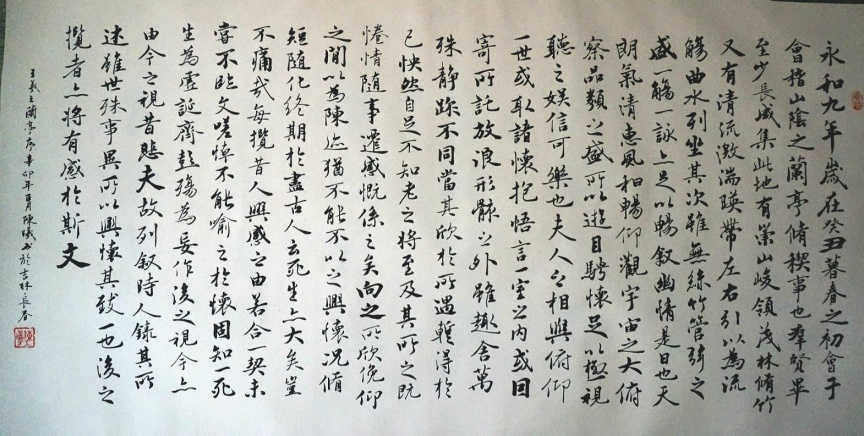 永和九年歲在癸丑暮春之初會于
會稽山陰之蘭亭脩稧事也群賢畢
至少長咸集此地有崇山峻領茂林脩竹
又有清流激湍暎帶左右引以為流
觴曲水列坐其次雖無絲竹管弦之
盛一觴一詠亦足以暢敘幽情是日也天
朗氣清惠風和暢仰觀宇宙之大俯
察品類之盛所以遊目騁懷足以極視
聽之娛信可樂也夫人之相與俯仰
一世或取諸懷抱悟言一室之內或因
寄所託放浪形骸之外雖趣舍萬
殊靜躁不同當其欣於所遇蹔得於
己怏然自足不知老之將至及其所之既
惓情隨事遷感慨係之矣向之所欣俛仰
之閒以為陳迹猶不能不以之興懷況脩
短隨化終期於盡古人云死生亦大矣豈
不痛哉每攬昔人興感之由若合一契未
嘗不臨文嗟悼不能喻之於懷固知一死
生為虛誕齊彭殤為妄作後之視今亦
由今之視昔悲夫故列敘時人錄其所
述雖世殊事異所以興懷其致一也後之
攬者亦將有感於斯文
王羲之蘭亭序辛卯年夏陳曦書於吉林長春